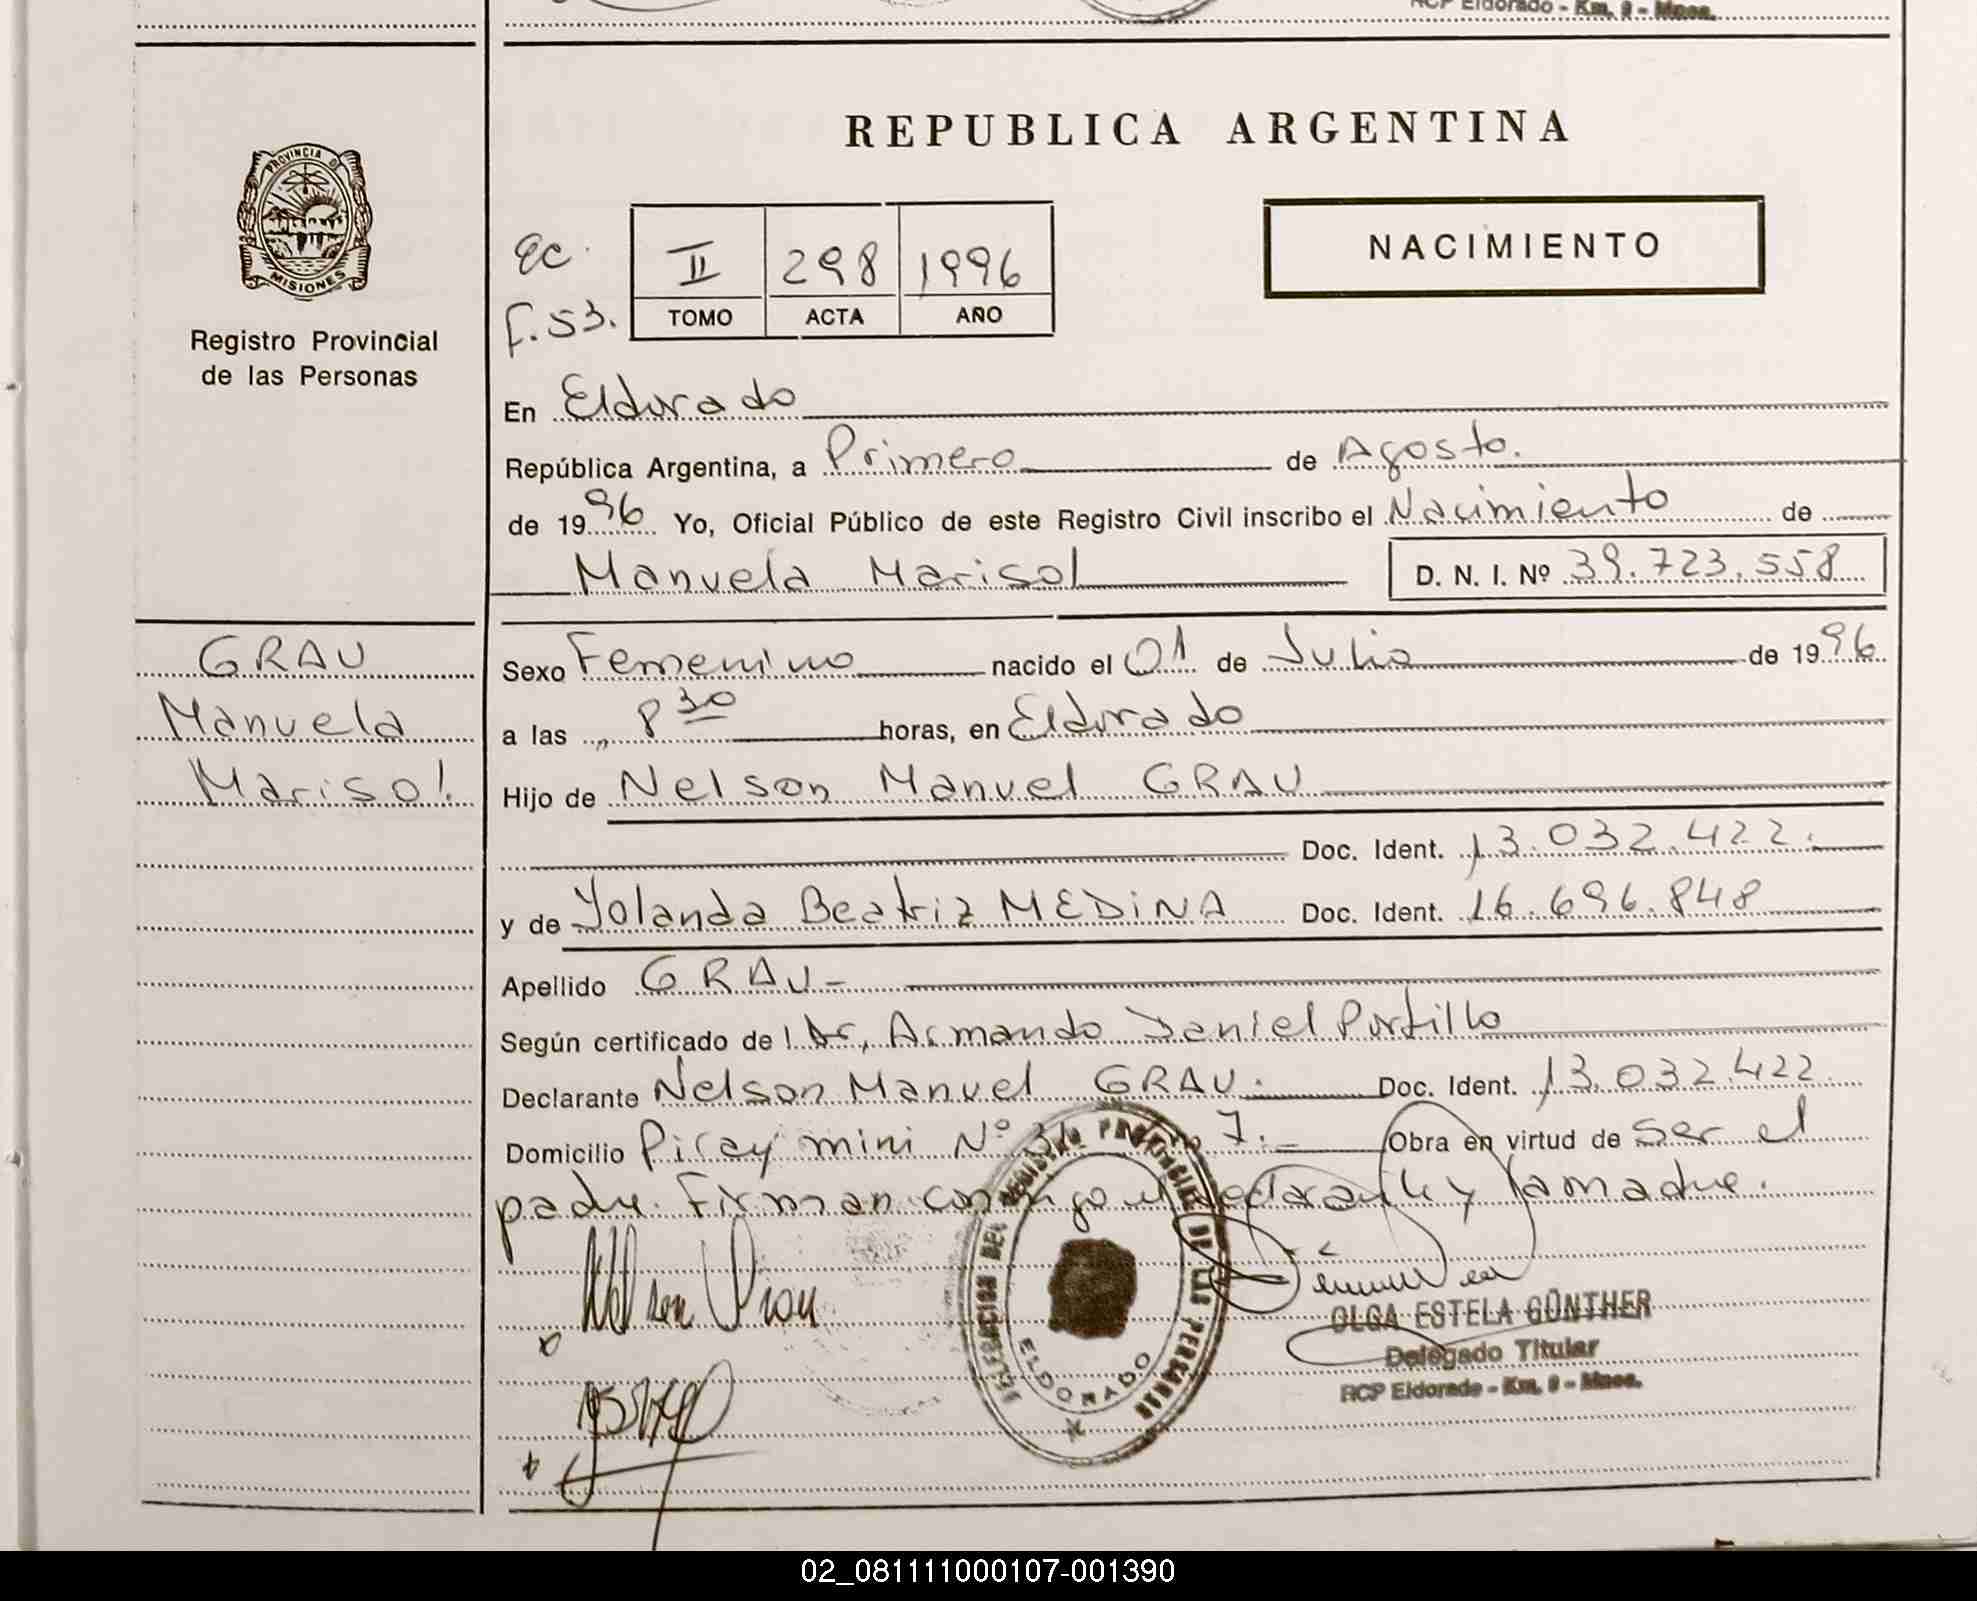 RCP Eldorado - Km. 9 - Mnes.
REPUBLICA ARGENTINA
PROVINCIA DE
MISIONES
Registro Provincial
de las Personas
ec.
F. 53.
II 298 1996
TOMO ACTA AÑO
NACIMIENTO
En Eldorado
República Argentina, a Primero de Agosto.
de 1996 Yo, Oficial Público de este Registro Civil inscribo el Nacimiento de
Manuela Marisol D. N. I. Nº 39.723.558
GRAU
Manuela
Marisol.
Sexo Femenino nacido el 01 de Julio de 1996
a las 8 30 horas, en Eldorado
Hijo de Nelson Manuel GRAU
Doc. Ident. 13.032.422.
y de Yolanda Beatriz MEDINA Doc. Ident. 16.696.848
Apellido GRAU-
Según certificado de Dr, Armando Daniel Portillo
Declarante Nelson Manuel GRAU. Doc. Ident. 13.032.422
Domicilio Piray mini Nº 7. Obra en virtud de ser el
padre. Firman conmigo el declarante y la madre.
DELEGACION DEL REGISTRO PROVINCIAL DE LAS PERSONAS
ELDORADO
OLGA ESTELA GÜNTHER
Delegado Titular
RCP Eldorado - Km. 9 - Mnes.
02_081111000107-001390